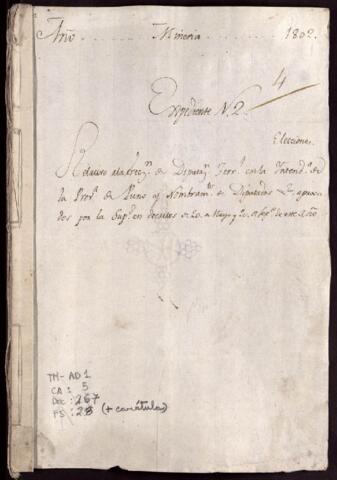 Año . . . . . Mineria . . . . . 1802.
4
Expediente N. 2.
Elecciones
Relativo ala de Diputn. Terr. en la Intenda. de
la Prova. de Puno y Nombram. de Diputados
dos por la Supd. en decretos de 20. de Mayo y 20. de Sepe. de este Año.
TM-AD1
CA: 5
Doc: 267
FS: 28 (+ carátula)